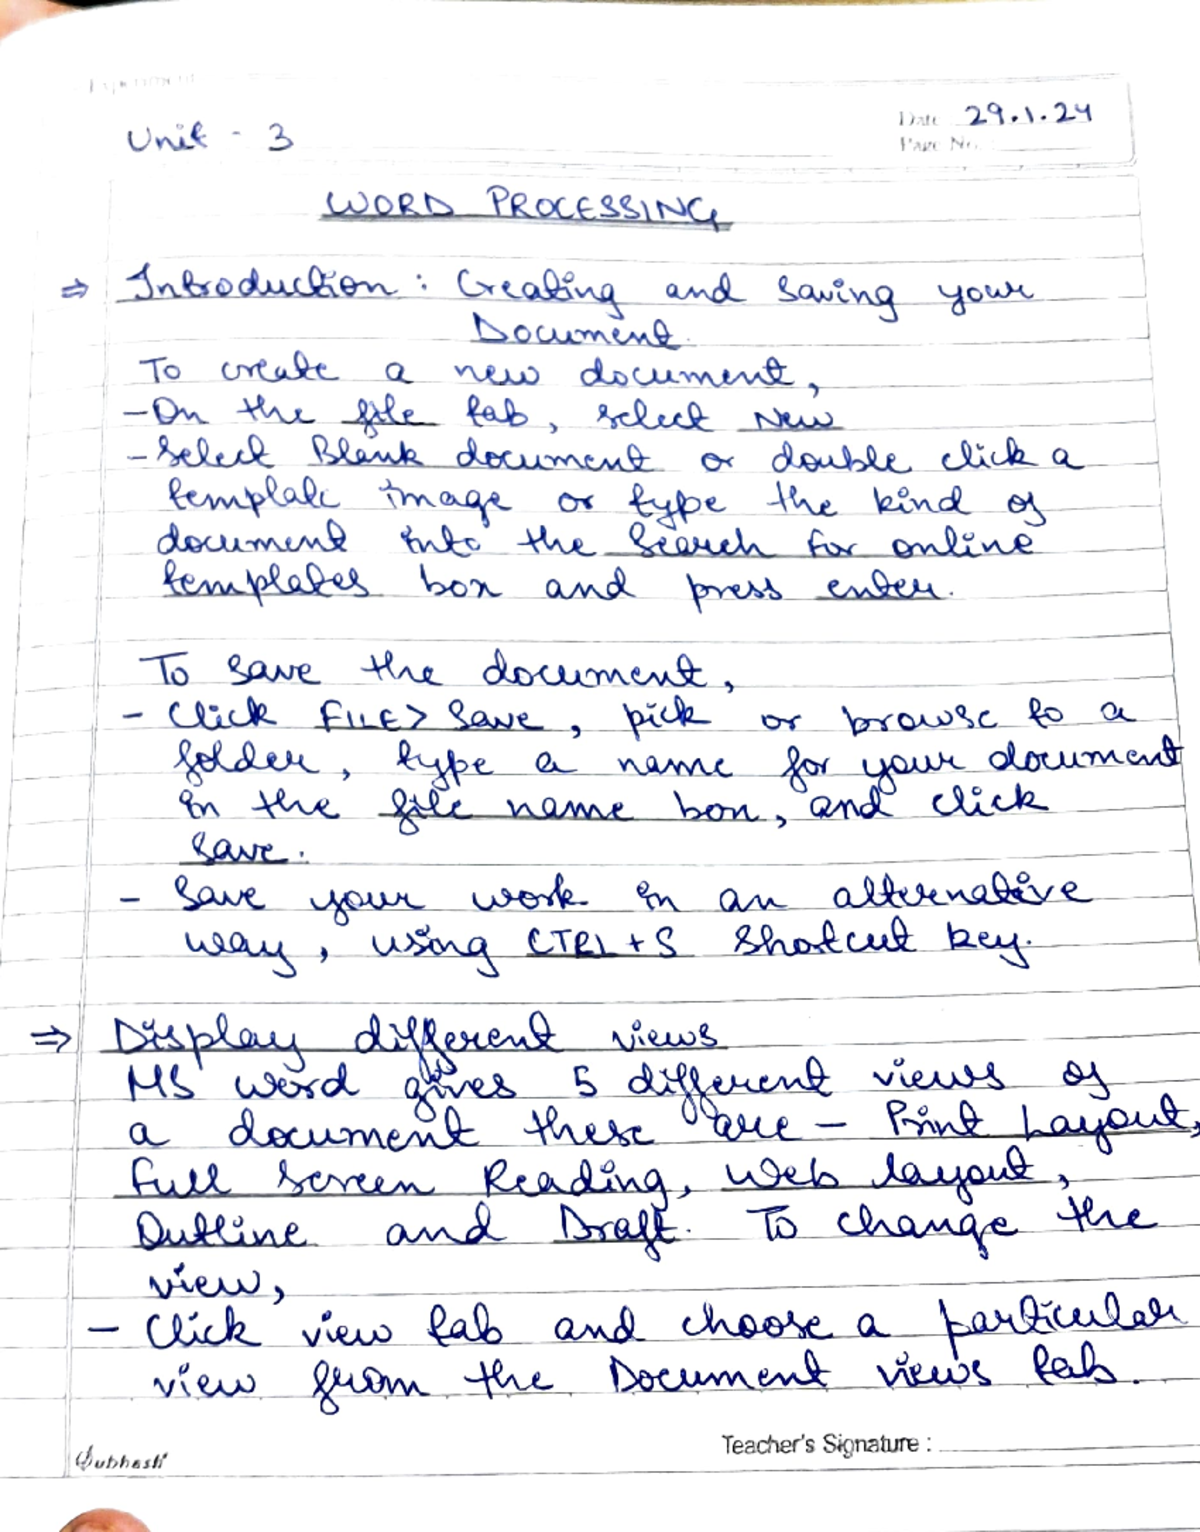 Experiment
Date 29.1.24
Unit - 3
Page No.
WORD PROCESSING
⇒ Introduction : Creating and Saving your
Document.
To create a new document,
- On the file tab, select New
- Select Blank document or double click a
template image or type the kind of
document into the Search for online
templates box and press enter.
To save the document,
- Click FILE> Save, pick or browse to a
folder, type a name for your document
in the file name box, and click
Save.
- Save your work in an alternative
way, using CTRL+S Shotcut key.
⇒ Display different views
MS word gives 5 different views of
a document these are - Print Layout,
Full Screen Reading, Web layout,
Outline and Draft. To change the
view,
- Click view tab and choose a particular
view from the Document views tab.
Teacher's Signature :
Subhash